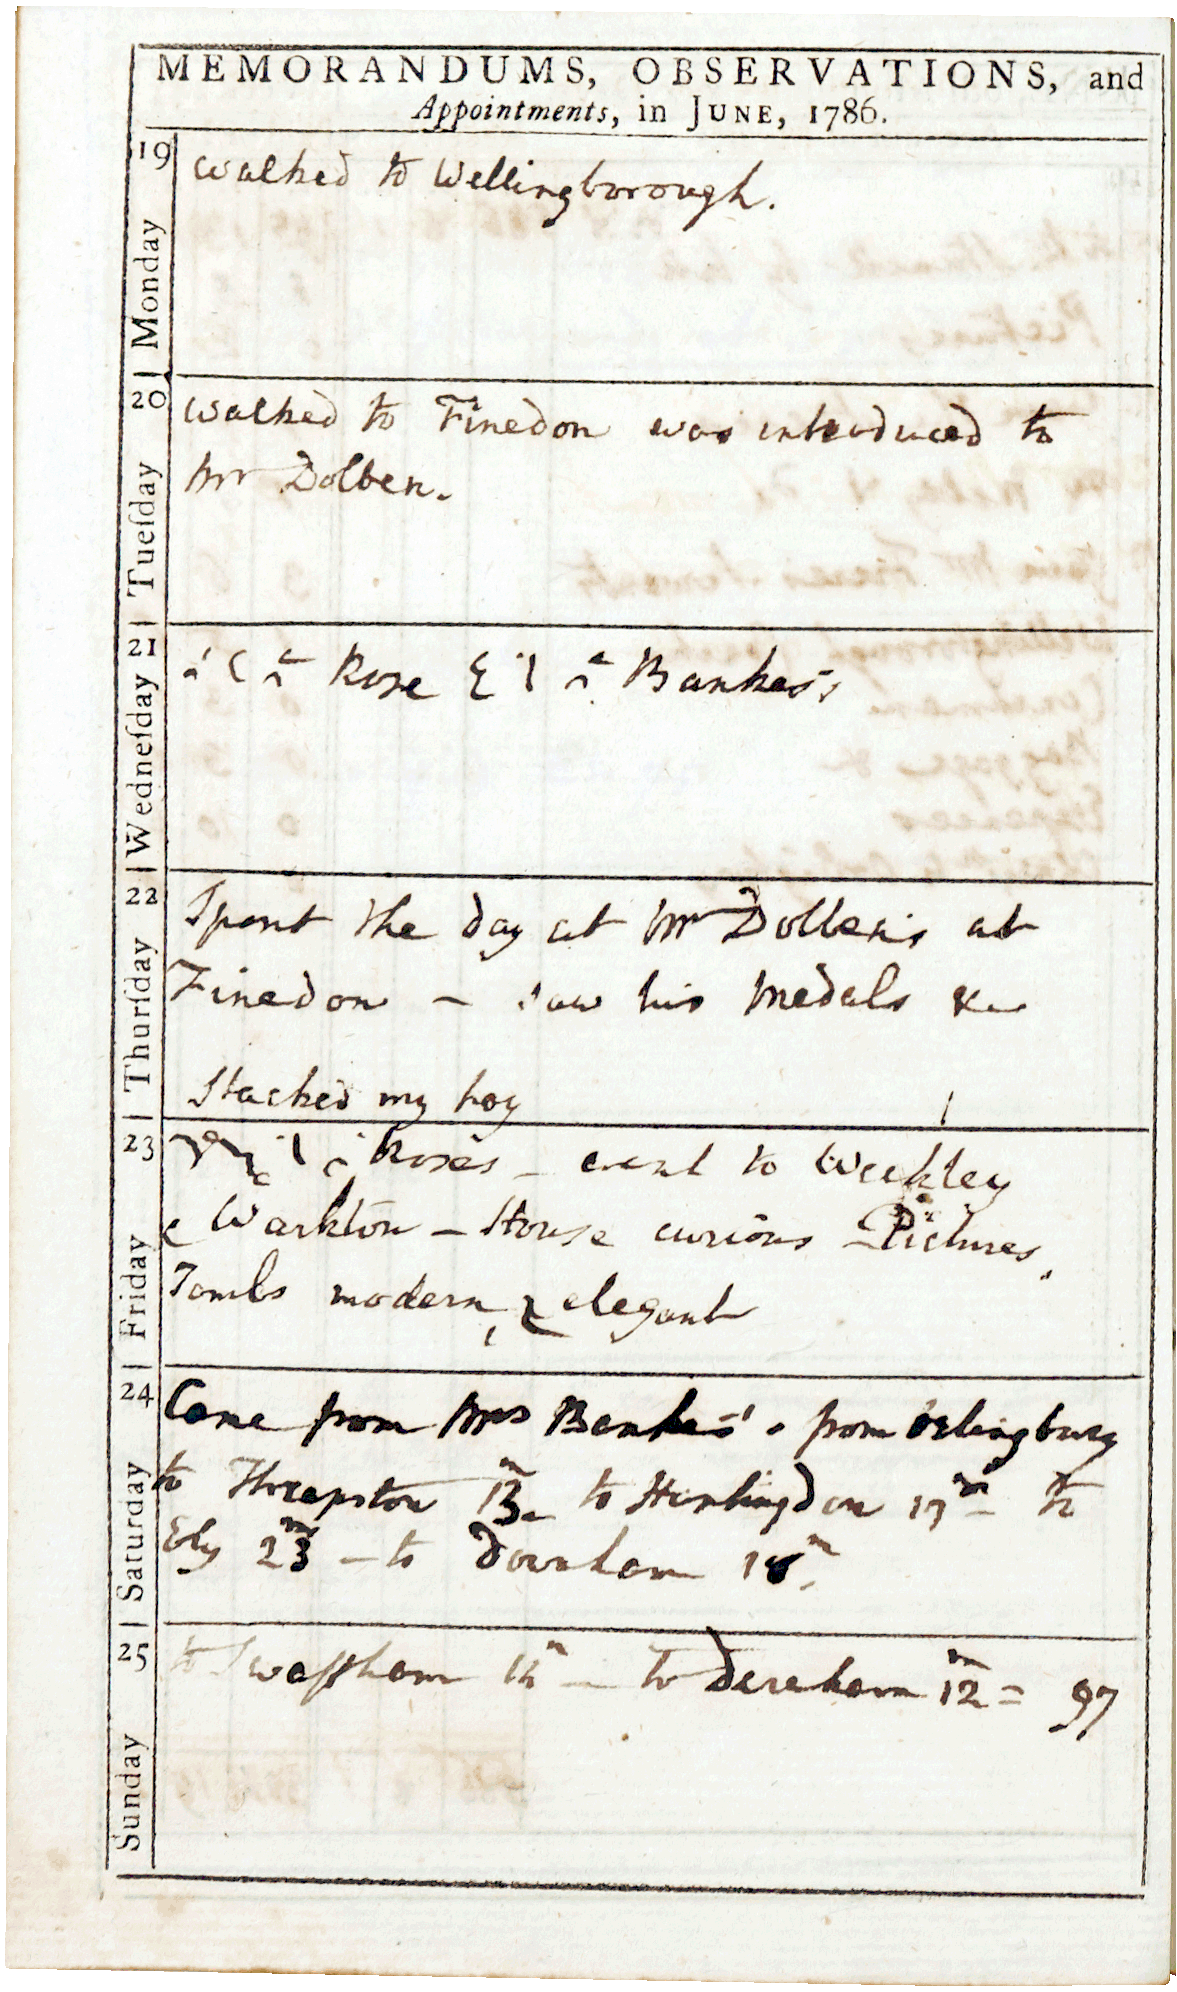 MEMORANDUMS, OBSERVATIONS, and
Appointments, in JUNE, 1786.
19 Monday
walked to Wellingborough.
20 Tueſday
walked to Finedon was introduced to
Mr Dolben.
21 Wedneſday
Rose Bankes's
22 Thurſday
Spent the day at Mr Dolben's at
Finedon – saw his Medals &c
Stacked my hay
23 Friday
Roses – went to Weekley
Warkton – House curious – Pictures,
Tombs modern, & elegant
24 Saturday
Came from Mrs Bankes' from Orlingbury
to Thrapston 13m to Huntingdon 17m – to
Ely 23m – to Downham 18m
25 Sunday
to Swaffham 14m – to Dereham 12m = 97